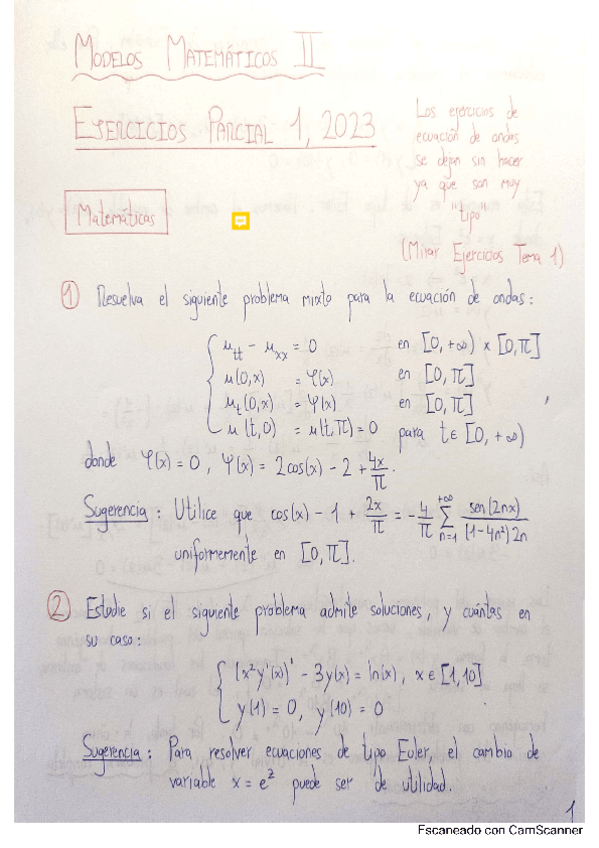 MODELOS MATEMÁTICOS II
EJERCICIOS PARCIAL 1, 2023
Los ejercicios de
ecuación de ondas
se dejan sin hacer
ya que son muy
"tipo"
(Mirar Ejercicios Tema 1)
Matemáticas
① Resuelva el siguiente problema mixto para la ecuación de ondas:
u_tt - u_xx = 0 en [0, +∞) × [0, π]
u(0,x) = φ(x) en [0, π]
u_t(0,x) = ψ(x) en [0, π]
u(t,0) = u(t,π) = 0 para t ∈ [0, +∞)
donde φ(x) = 0, ψ(x) = 2cos(x) - 2 + 4x/π.
Sugerencia: Utilice que cos(x) - 1 + 2x/π = -4/π ∑_{n=1}^{+∞} sen(2nx)/((1-4n²)2n)
uniformemente en [0, π].
② Estudie si el siguiente problema admite soluciones, y cuántas en
su caso:
(x²y'(x))' - 3y(x) = ln(x), x ∈ [1,10]
y(1) = 0, y(10) = 0
Sugerencia: Para resolver ecuaciones de tipo Euler, el cambio de
variable x = e^z puede ser de utilidad.
1
Escaneado con CamScanner